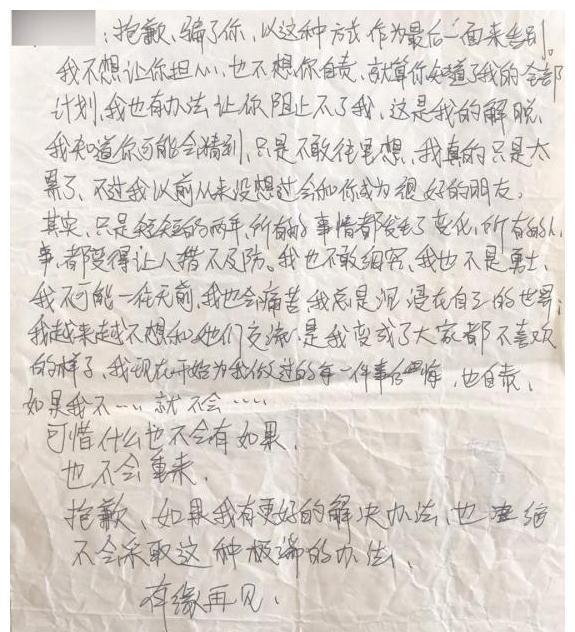 ：抱歉、骗了你，以这种方式作为最后一面来告别。
我不想让你担心，也不想你自责，就算你知道了我的全部
计划，我也有办法让你阻止不了我，这是我的解脱，
我知道你可能会猜到，只是不敢往里想，我真的只是太
累了、不过我以前从来没想过会和你成为很好的朋友，
其实，只是短短的两年，所有的事情都发生了变化，所有的人
事，都变得让人措不及防。我也不敢细究，我也不是勇士，
我不可能一往无前，我也会痛苦，我总是沉浸在自己的世界；
我越来越不想和她们交流，是我变成了大家都不喜欢
的样子、我现在开始为我做过的每一件事后悔，也自责、
如果我不…… 就不会……
可惜什么也不会有如果，
也不会重来，
抱歉、如果我有更好的解决办法、也
不会采取这种极端的办法、
有缘再见、